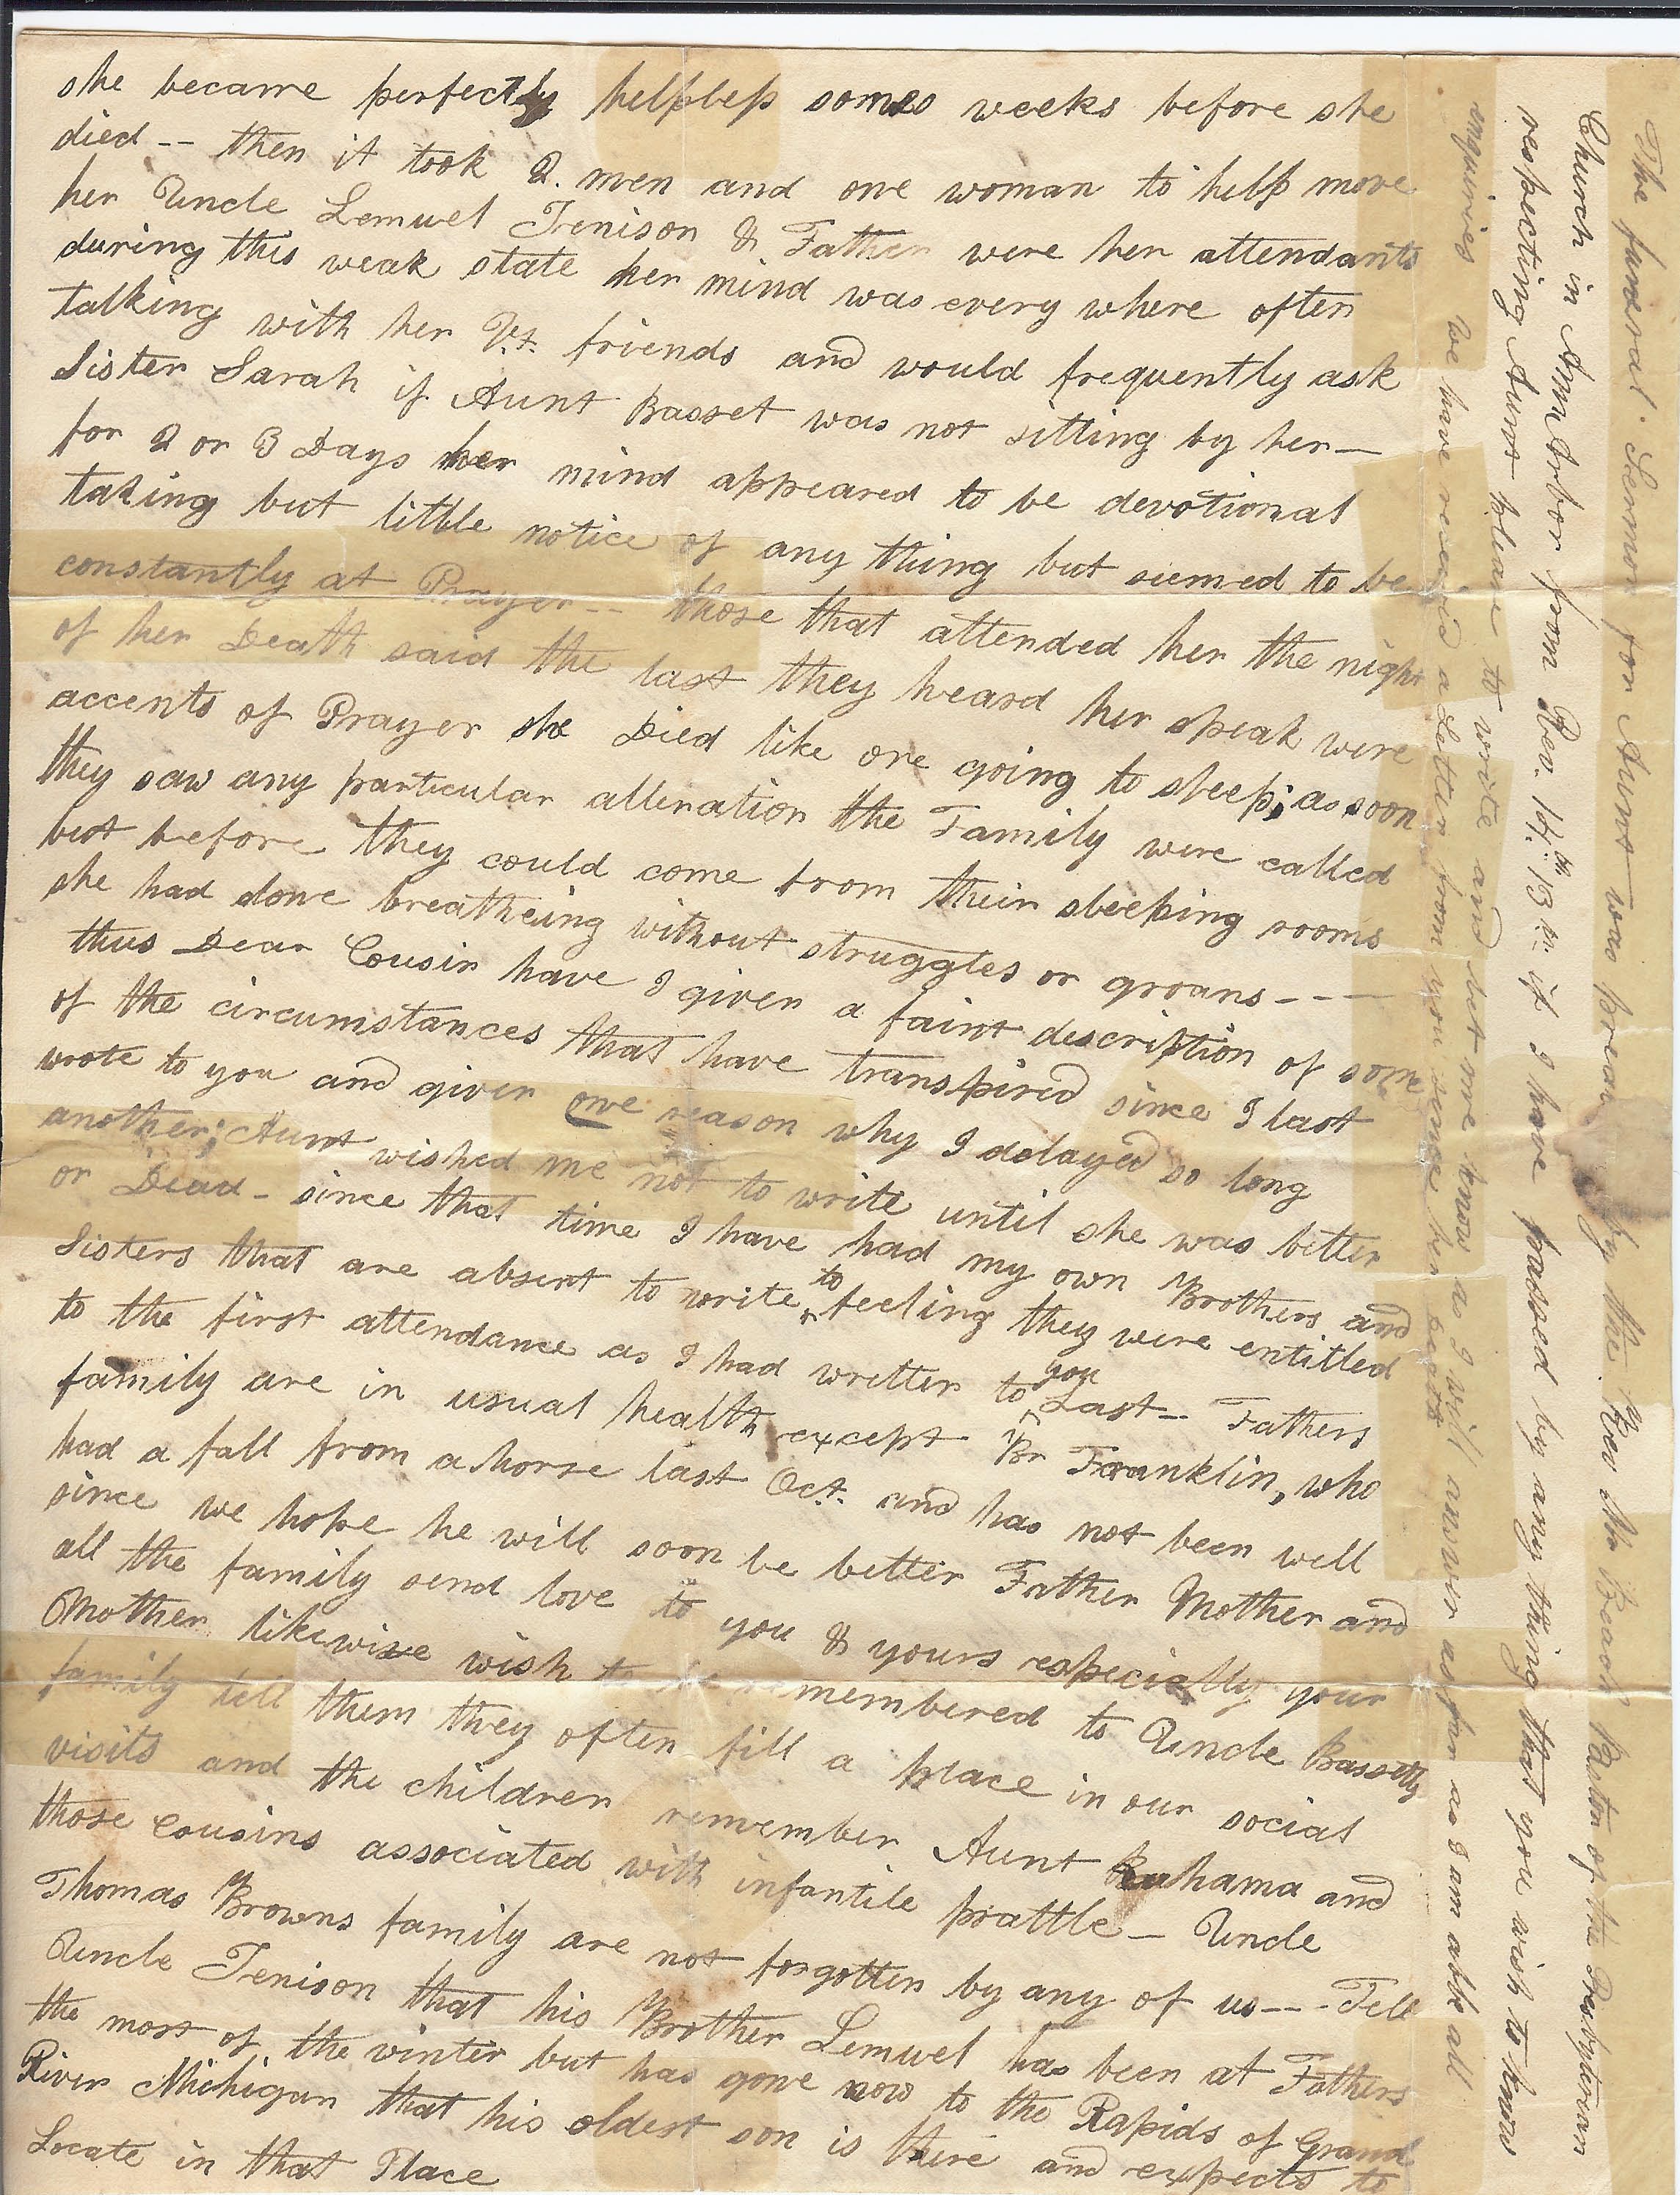 she became perfectly helpless some weeks before she
died -- then it took 2. men and one woman to help move
her Uncle Lemuel Tenison & Father were her attendants
during this weak state her mind was every where often
talking with her Vt. friends and would frequently ask
Sister Sarah if Aunt Basset was not sitting by her—
for 2 or 3 Days her mind appeared to be devotional
taking but little notice of any thing but seemed to be
constantly at Prayer -- those that attended her the night
of her Death said the last they heard her speak were
accents of Prayer she Died like one going to sleep; as soon
they saw any particular alteration the Family were called
but before they could come from their sleeping rooms
she had done breatheing without struggles or groans ---
thus Dear Cousin have I given a faint description of some
of the circumstances that have transpired since I last
wrote to you and given one reason why I delayed so long
another; Aunt wished me not to write until she was better
or Dead - since that time I have had my own Brothers and
Sisters that are absent to write to feeling they were entitled
to the first attendance as I had written to you Last -- Fathers
family are in usual health except Br Franklin, who
had a fall from a horse last Oct. and has not been well
since we hope he will soon be better Father Mother and
all the family send love to you & yours especially your
Mother likewise wish to be remembered to Uncle Bassetts
family tell them they often fill a place in our social
visits and the children remember Aunt Ruhama and
those cousins associated with infantile prattle — Uncle
Thomas Browns family are not forgotten by any of us --- Tell
Uncle Tenison that his Brother Lemuel has been at Fathers
the most of the winter but has gone now to the Rapids of Grand
River Michigan that his oldest son is there and expects to
Locate in that Place
The funeral Sermon for Aunt was preached by the Rev Mr Beach Pastor of the Presbyterian
Church in Ann Arbor from Rev. 14.th 13th. if I have passed by any thing that you wish to know
respecting Aunt please to write and let me know as I will answer as far as I am able all
enquiries We have received a Letter from you since her death